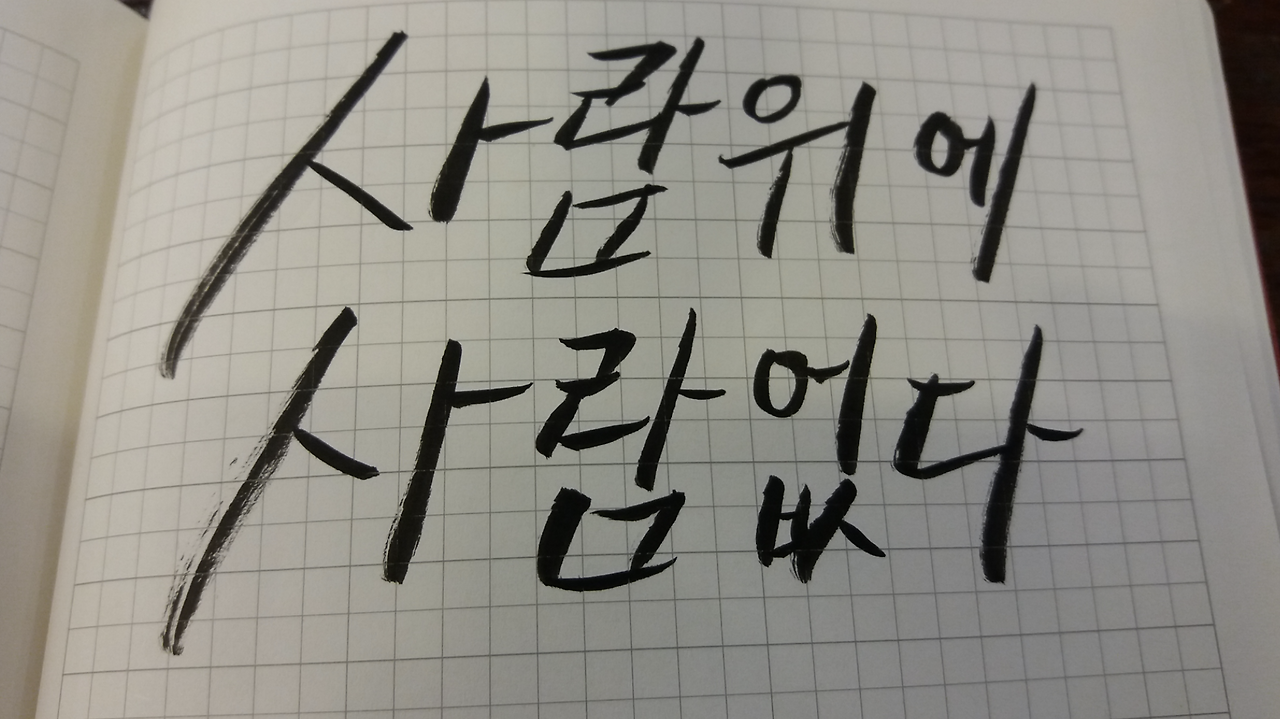 사람위에
사람없다